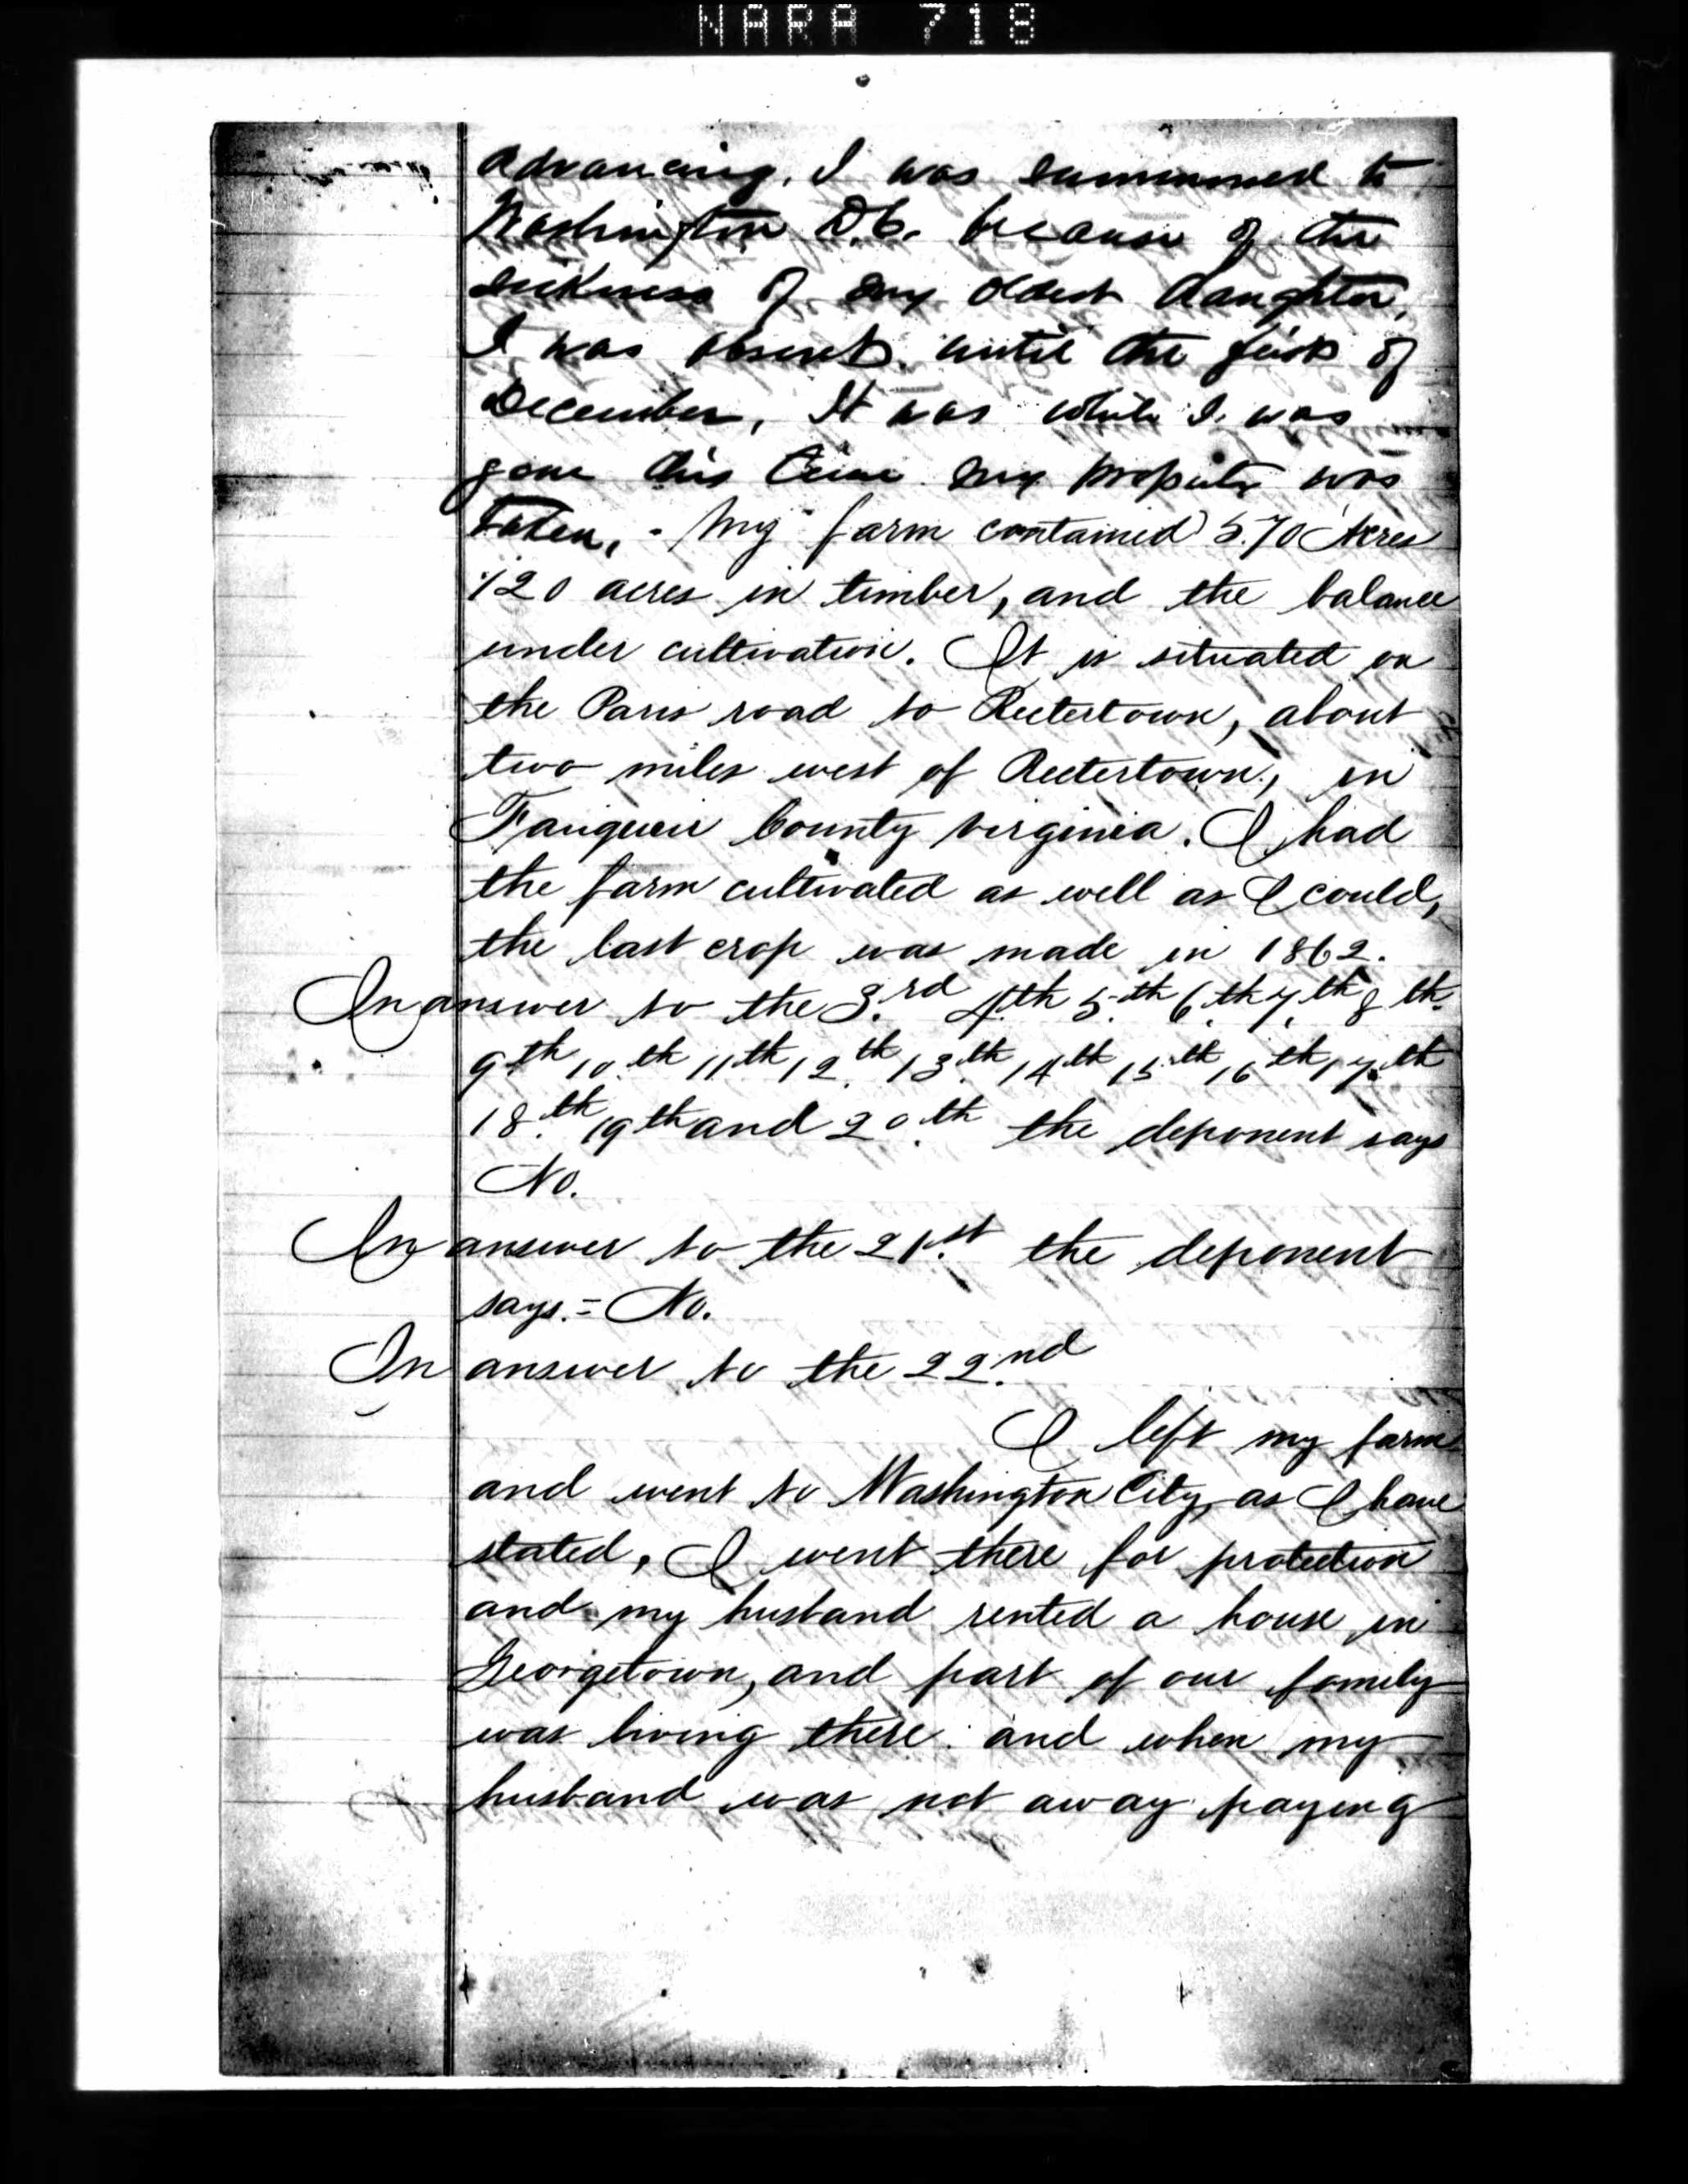 NARA 718
advancing. I was summoned to
Washington D.C. because of the
sickness of my oldest daughter,
I was absent until the first of
December, It was while I was
gone this time my property was
taken, - My farm contained 570 Acres
120 acres in timber, and the balance
under cultivation. It is situated on
the Paris road to Rectertown, about
two miles west of Rectertown, in
Fauqueir County Virginia. I had
the farm cultivated as well as I could,
the last crop was made in 1862.
In answer to the 3rd 4th 5th 6th 7th 8th
9th 10th 11th 12th 13th 14th 15th 16th 17th
18th 19th and 20th the deponent says
No.
In answer to the 21st the deponent
says. = No.
In answer to the 22nd
I left my farm
and went to Washington City, as I have
stated, I went there for protection
and my husband rented a house in
Georgetown, and part of our family
was living there. and when my
husband was not away paying